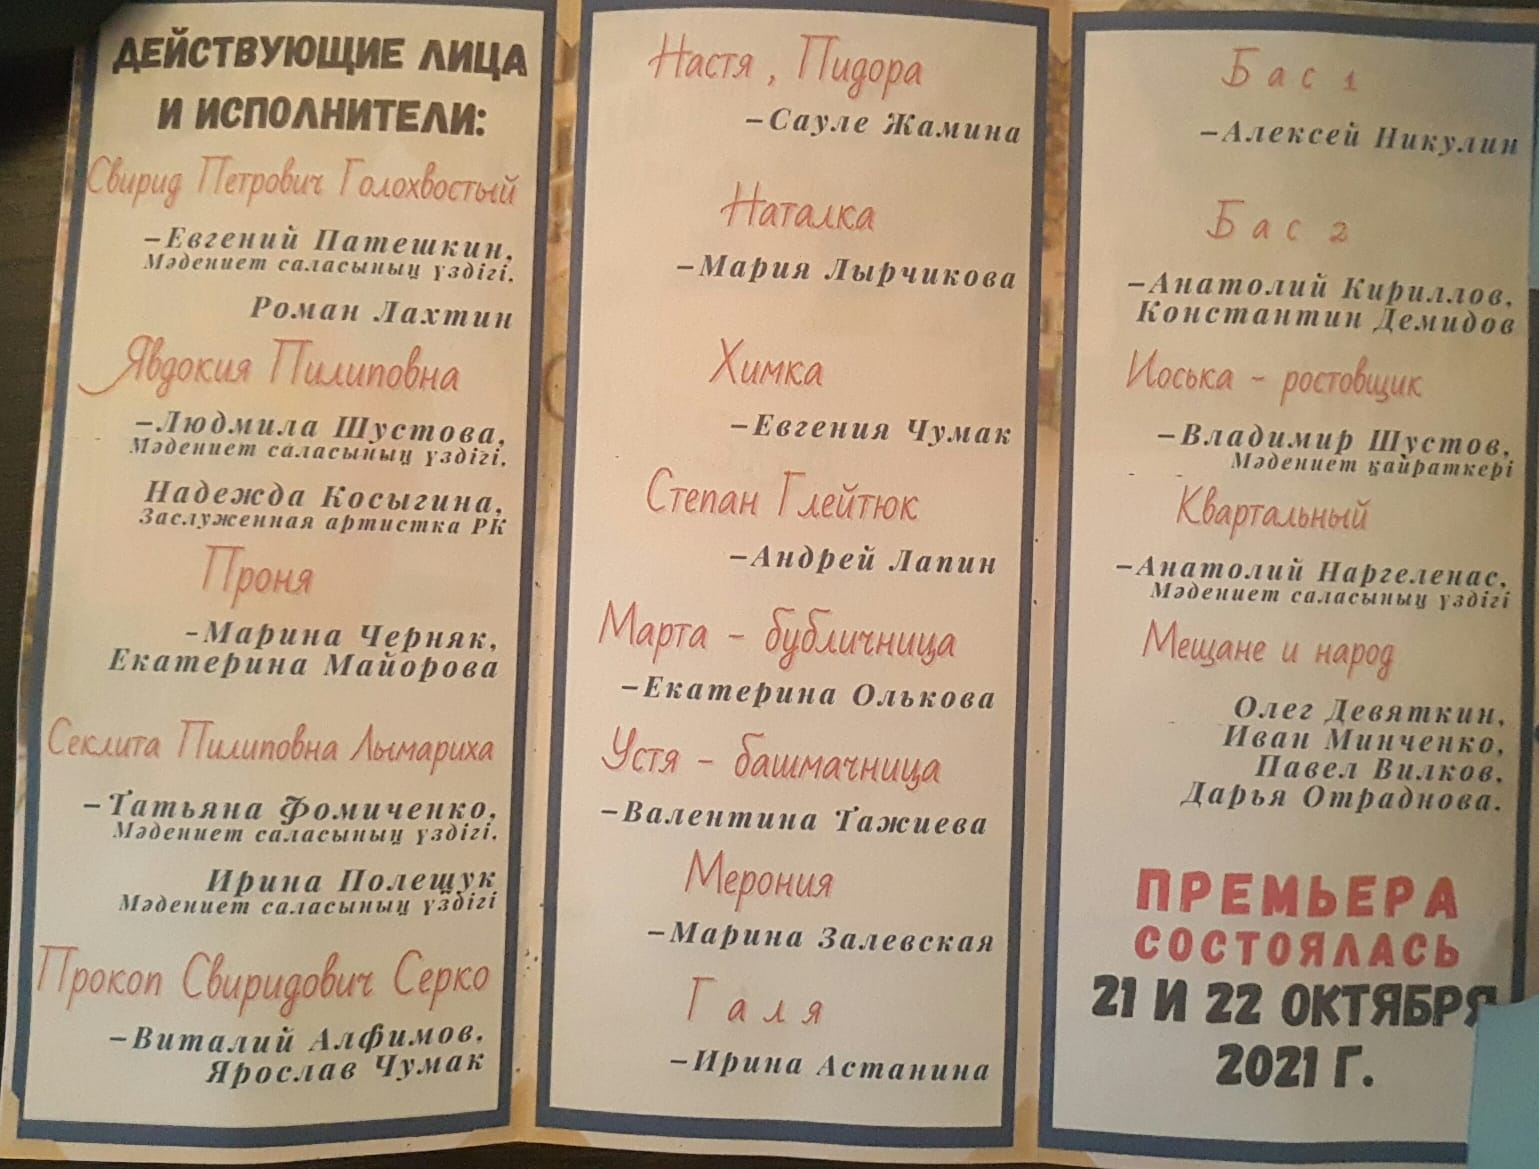 ДЕЙСТВУЮЩИЕ ЛИЦА
И ИСПОЛНИТЕЛИ:
Свирид Петрович Голохвостый
–Евгений Патешкин,
Мәдениет саласының үздігі,
Роман Лахтин
Явдокия Пилиповна
–Людмила Шустова,
Мәдениет саласының үздігі,
Надежда Косыгина,
Заслуженная артистка РК
Проня
-Марина Черняк,
Екатерина Майорова
Секлита Пилиповна Лымариха
–Татьяна Фомиченко,
Мәдениет саласының үздігі,
Ирина Полещук
Мәдениет саласының үздігі
Прокоп Свиридович Серко
–Виталий Алфимов,
Ярослав Чумак
Настя , Пидора
–Сауле Жамина
Наталка
–Мария Лырчикова
Химка
–Евгения Чумак
Степан Глейтюк
–Андрей Лапин
Марта - бубличница
–Екатерина Олькова
Устя - башмачница
–Валентина Тажиева
Мерония
–Марина Залевская
Галя
–Ирина Астанина
Бас 1
–Алексей Никулин
Бас 2
–Анатолий Кириллов,
Константин Демидов
Иоська - ростовщик
–Владимир Шустов,
Мәдениет қайраткері
Квартальный
–Анатолий Наргеленас,
Мәдениет саласының үздігі
Мещане и народ
Олег Девяткин,
Иван Минченко,
Павел Вилков,
Дарья Отраднова.
ПРЕМЬЕРА
СОСТОЯЛАСЬ
21 И 22 ОКТЯБРЯ
2021 Г.